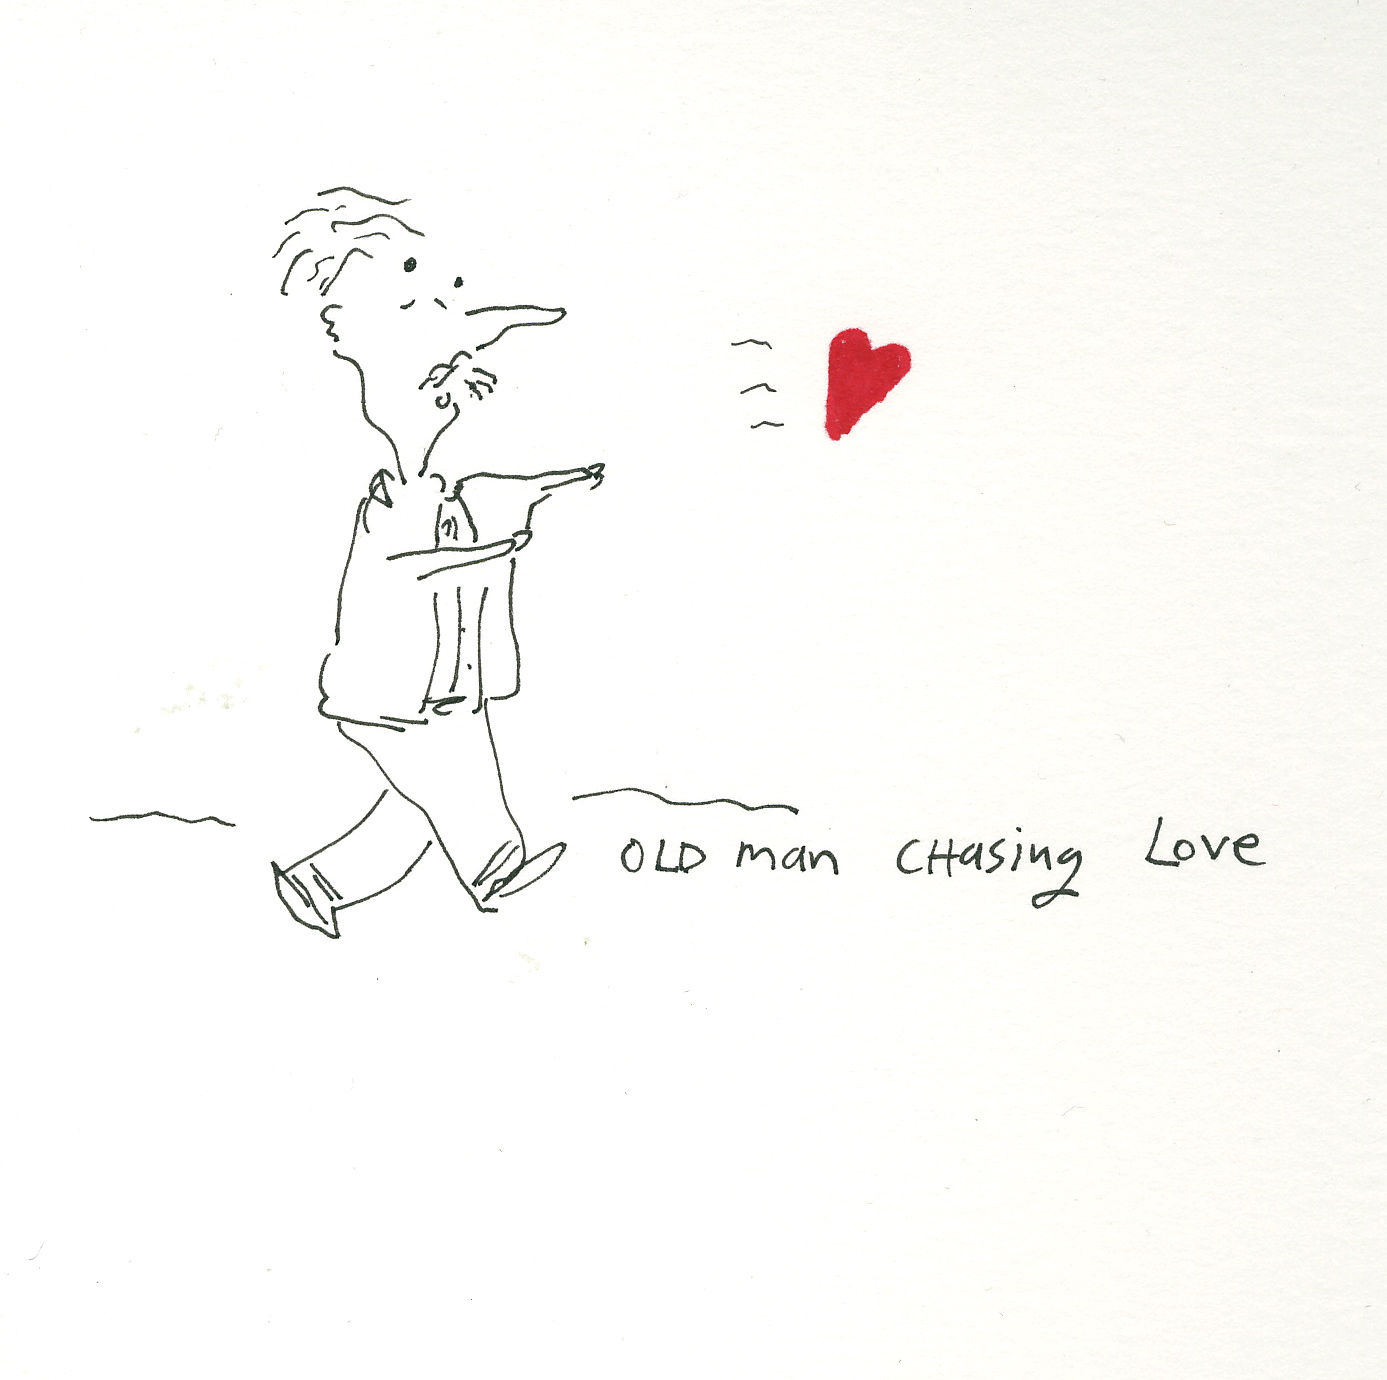 OLD man CHasing Love